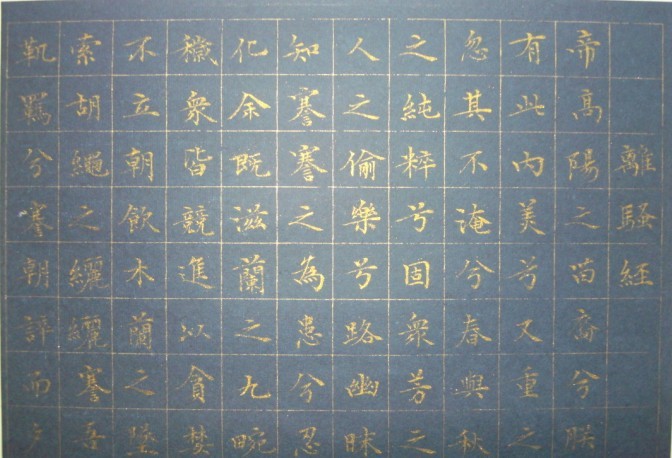 離騷經
帝高陽之苗裔兮朕
有此內美兮又重之
忽其不淹兮春與秋
之純粹兮固衆芳之
人之偷樂兮路幽昧
知謇謇之為患兮忍
化余既滋蘭之九畹
穢衆皆競進以貪婪
不立朝飲木蘭之墜
索胡繩之纚纚謇吾
鞿羈兮謇朝誶而夕